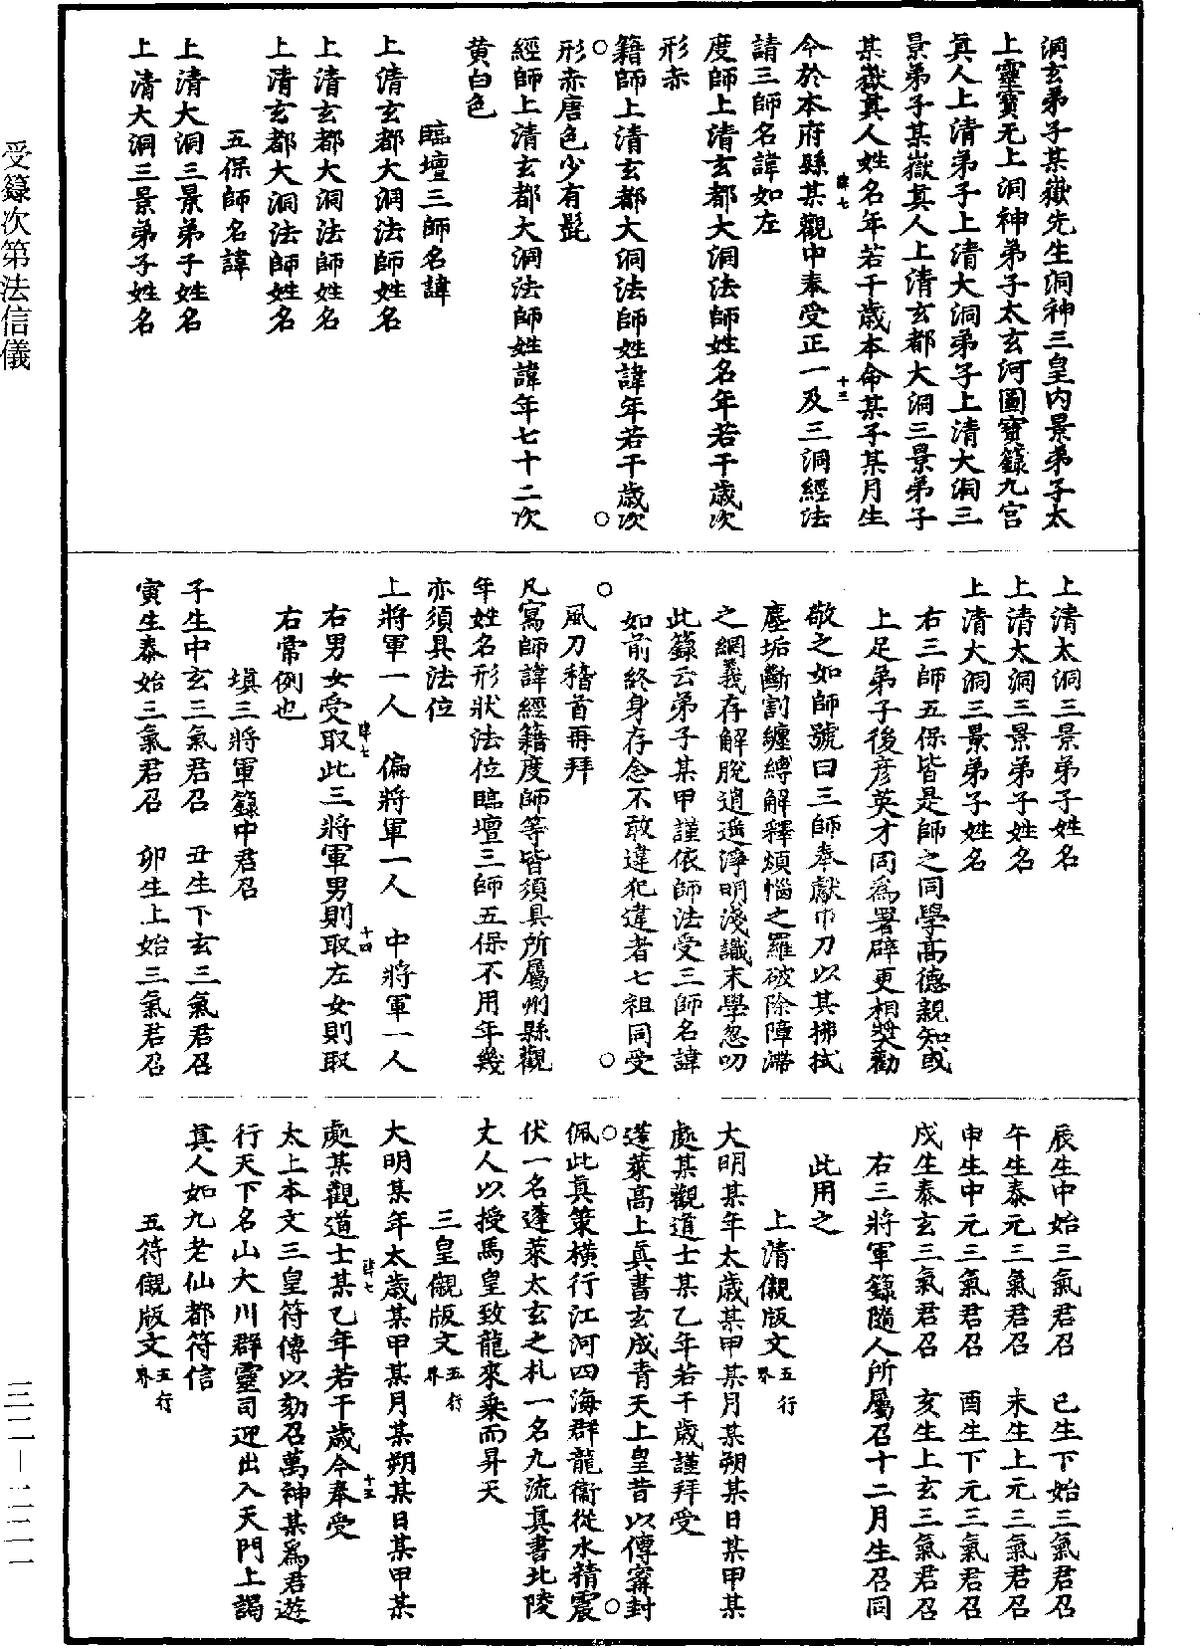 洞玄弟子某嶽先生洞神三皇内景弟子太
上靈寶无上洞神弟子太玄河圖寶籙九宮
真人上清弟子上清大洞弟子上清大洞三
景弟子某嶽真人上清玄都大洞三景弟子
某嶽真人姓名年若干歲本命某子某月生
肆七
十三
今於本府縣某觀中奉受正一及三洞經法
請三師名諱如左
度師上清玄都大洞法師姓名年若干歲次
形赤
籍師上清玄都大洞法師姓諱年若干歲次
形赤唐色少有髭
經師上清玄都大洞法師姓諱年七十二次
黄白色
臨壇三師名諱
上清玄都大洞法師姓名
上清玄都大洞法師姓名
上清玄都大洞法師姓名
五保師名諱
上清大洞三景弟子姓名
上清大洞三景弟子姓名
上清大洞三景弟子姓名
上清大洞三景弟子姓名
上清大洞三景弟子姓名
右三師五保皆是師之同學高德親知或
上足弟子後彦英才同為署辟更相獎勸
敬之如師號曰三師奉獻巾刀以其拂拭
塵垢斷割纏縛解釋煩惱之羅破除障滯
之網義存解脫逍遥淨明淺識末學忽叨
此籙云弟子某甲謹依師法受三師名諱
如前終身存念不敢違犯違者七祖同受
風刀稽首再拜
凡寫師諱經籍度師等皆須具所屬州縣觀
年姓名形狀法位臨壇三師五保不用年幾
亦須具法位
上將軍一人　偏將軍一人　中將軍一人
右男女受取此三將軍男則取左女則取
肆七
十四
右常例也
填三將軍籙中君召
子生中玄三氣君召　丑生下玄三氣君召
寅生泰始三氣君召　卯生上始三氣君召
辰生中始三氣君召　巳生下始三氣君召
午生泰元三氣君召　未生上元三氣君召
申生中元三氣君召　酉生下元三氣君召
戌生泰玄三氣君召　亥生上玄三氣君召
右三將軍籙隨人所屬召十二月生召同
此用之
上清儭版文五行界
大明某年太歲某甲某月某朔某日某甲某
處某觀道士某乙年若干歲謹拜受
蓬萊高上真書玄成青天上皇昔以傳甯封
佩此真策橫行江河四海群龍衞從水精震
伏一名蓬萊太玄之札一名九流真書北陵
丈人以授馬皇致龍來乗而昇天
三皇儭版文五行界
大明某年太歲某甲某月某朔某日某甲某
肆七
十五
處某觀道士某乙年若干歲今奉受
太上本文三皇符傳以劾召萬神某爲君遊
行天下名山大川群靈司迎出入天門上謁
真人如九老仙都符信
五符儭版文五行界
受籙次第法信儀
三二—二二一